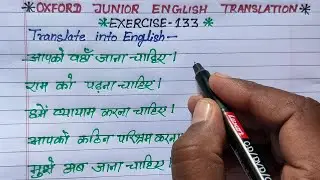 *OXFORD JUNIOR ENGLISH TRANSLATION*
*EXERCISE-133*
Translate into English-
आपको वहाँ जाना चाहिए।
राम को पढ़ना चाहिए।
हमें व्यायाम करना चाहिए।
आपको कठिन परिश्रम करना
मुझे अब जाना चाहिए।